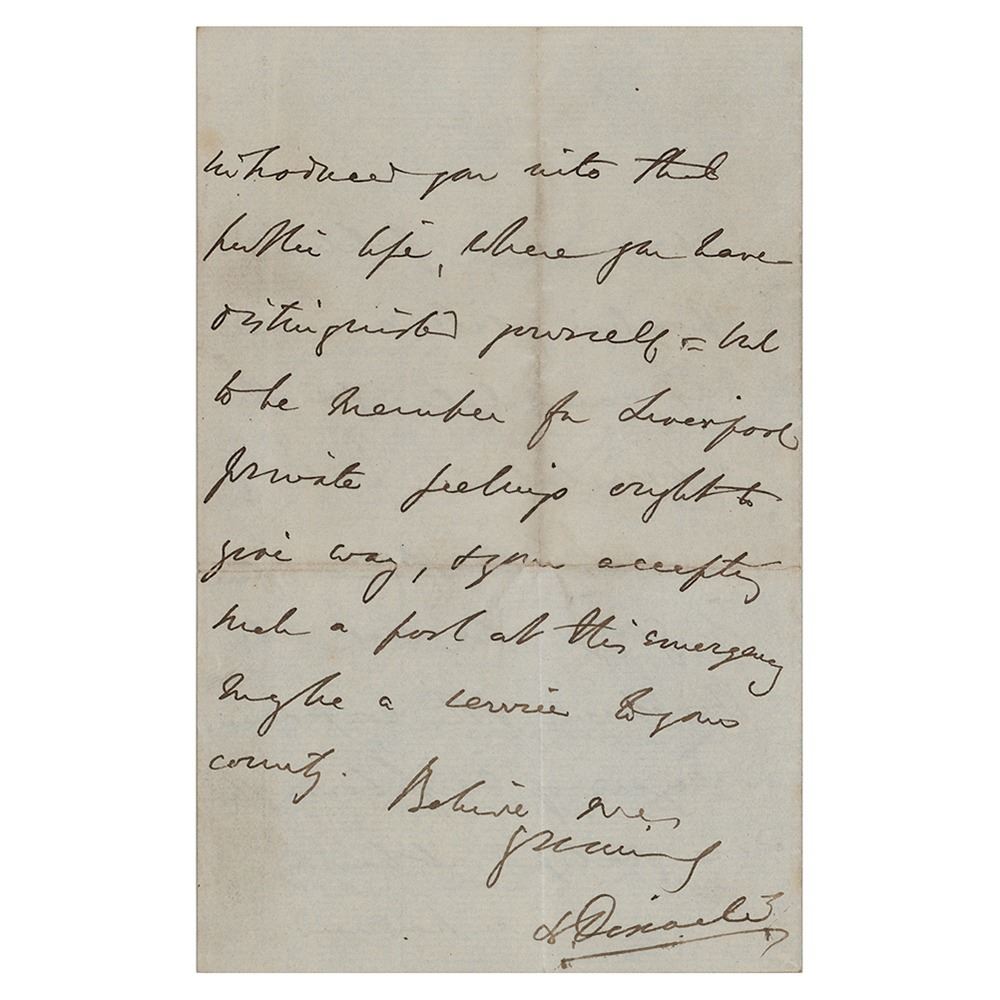 introduced you into that
public life, where you have
distinguished yourself = but
to be member for Liverpool
private feelings ought to
give way, & your accepting
such a post at this emergency
may be a service to your
country. Believe me,
yours
D. Disraeli